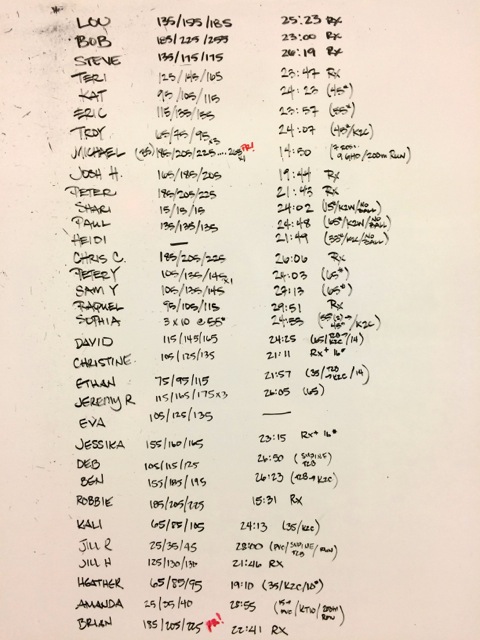 LOU 135/155/185 25:23 RX
BOB 185/225/255 23:00 RX
STEVE 135/175/175 26:19 RX
TERI 125/145/165 23:47 RX
KAT 95/105/115 24:23 (45#)
ERIC 115/135/155 23:57 (55#)
TROY 65/75/95x3 24:07 (45#/K2C)
MICHAEL (135)/185/205/225....265x1 PR! 14:50 (7 RDS. 9 GHD/200M RUN)
JOSH H. 165/185/205 19:44 RX
PETER 185/205/225 21:43 RX
SHARI 15/15/15 24:02 (15#/K2W/NO BALL)
PAUL 135/135/135 24:48 (65#/K2W/NO BALL)
HEIDI — 21:49 (35#/K2C/NO BALL)
CHRIS C. 185/205/225 26:06 RX
PETER Y 105/135/145x1 24:03 (65#)
SAM Y 105/135/145 27:13 (65#)
RAQUEL 95/105/115 29:51 RX
SOPHIA 3 x 10 @ 55# 24:55 /K2C)
DAVID 115/145/165 24:25 (65/T2B→K2C/14)
CHRISTINE 105/125/135 21:11 RX+ 16#
ETHAN 75/95/115 21:57 (35/T2B→K2C/14)
JEREMY R 115/165/175x3 26:05 (65)
EVA 105/125/135 —
JESSIKA 155/160/165 23:15 RX+ 16#
DEB 105/115/125 26:50 (SUPINE T2B)
BEN 155/185/195 26:23 (T2B→K2C)
ROBBIE 185/205/225 15:31 RX
KALI 65/85/105 24:13 (35/K2C)
JILL R 25/35/45 28:00 (PVC/SUPINE T2B/RUN)
JILL H 125/130/130 21:46 RX
HEATHER 65/85/95 19:10 (35/K2C/10#)
AMANDA 25/35/40 28:55 (15# PVC/KTW/200M ROW)
BRIAN 185/205/225 PR! 22:41 RX